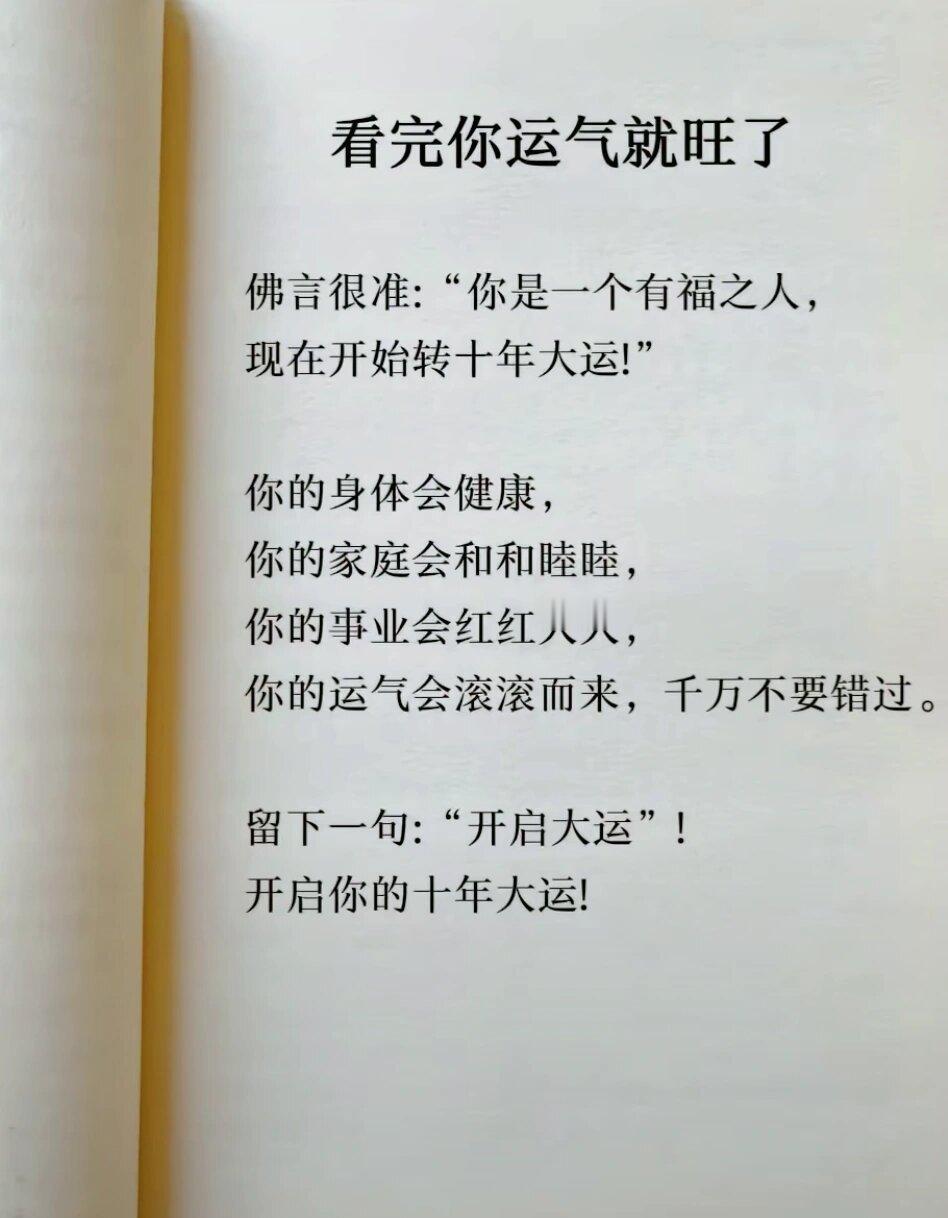 看完你运气就旺了
佛言很准:“你是一个有福之人,
现在开始转十年大运!”
你的身体会健康,
你的家庭会和和睦睦,
你的事业会红红
你的运气会滚滚而来,千万不要错过。
留下一句:“开启大运”!
开启你的十年大运!